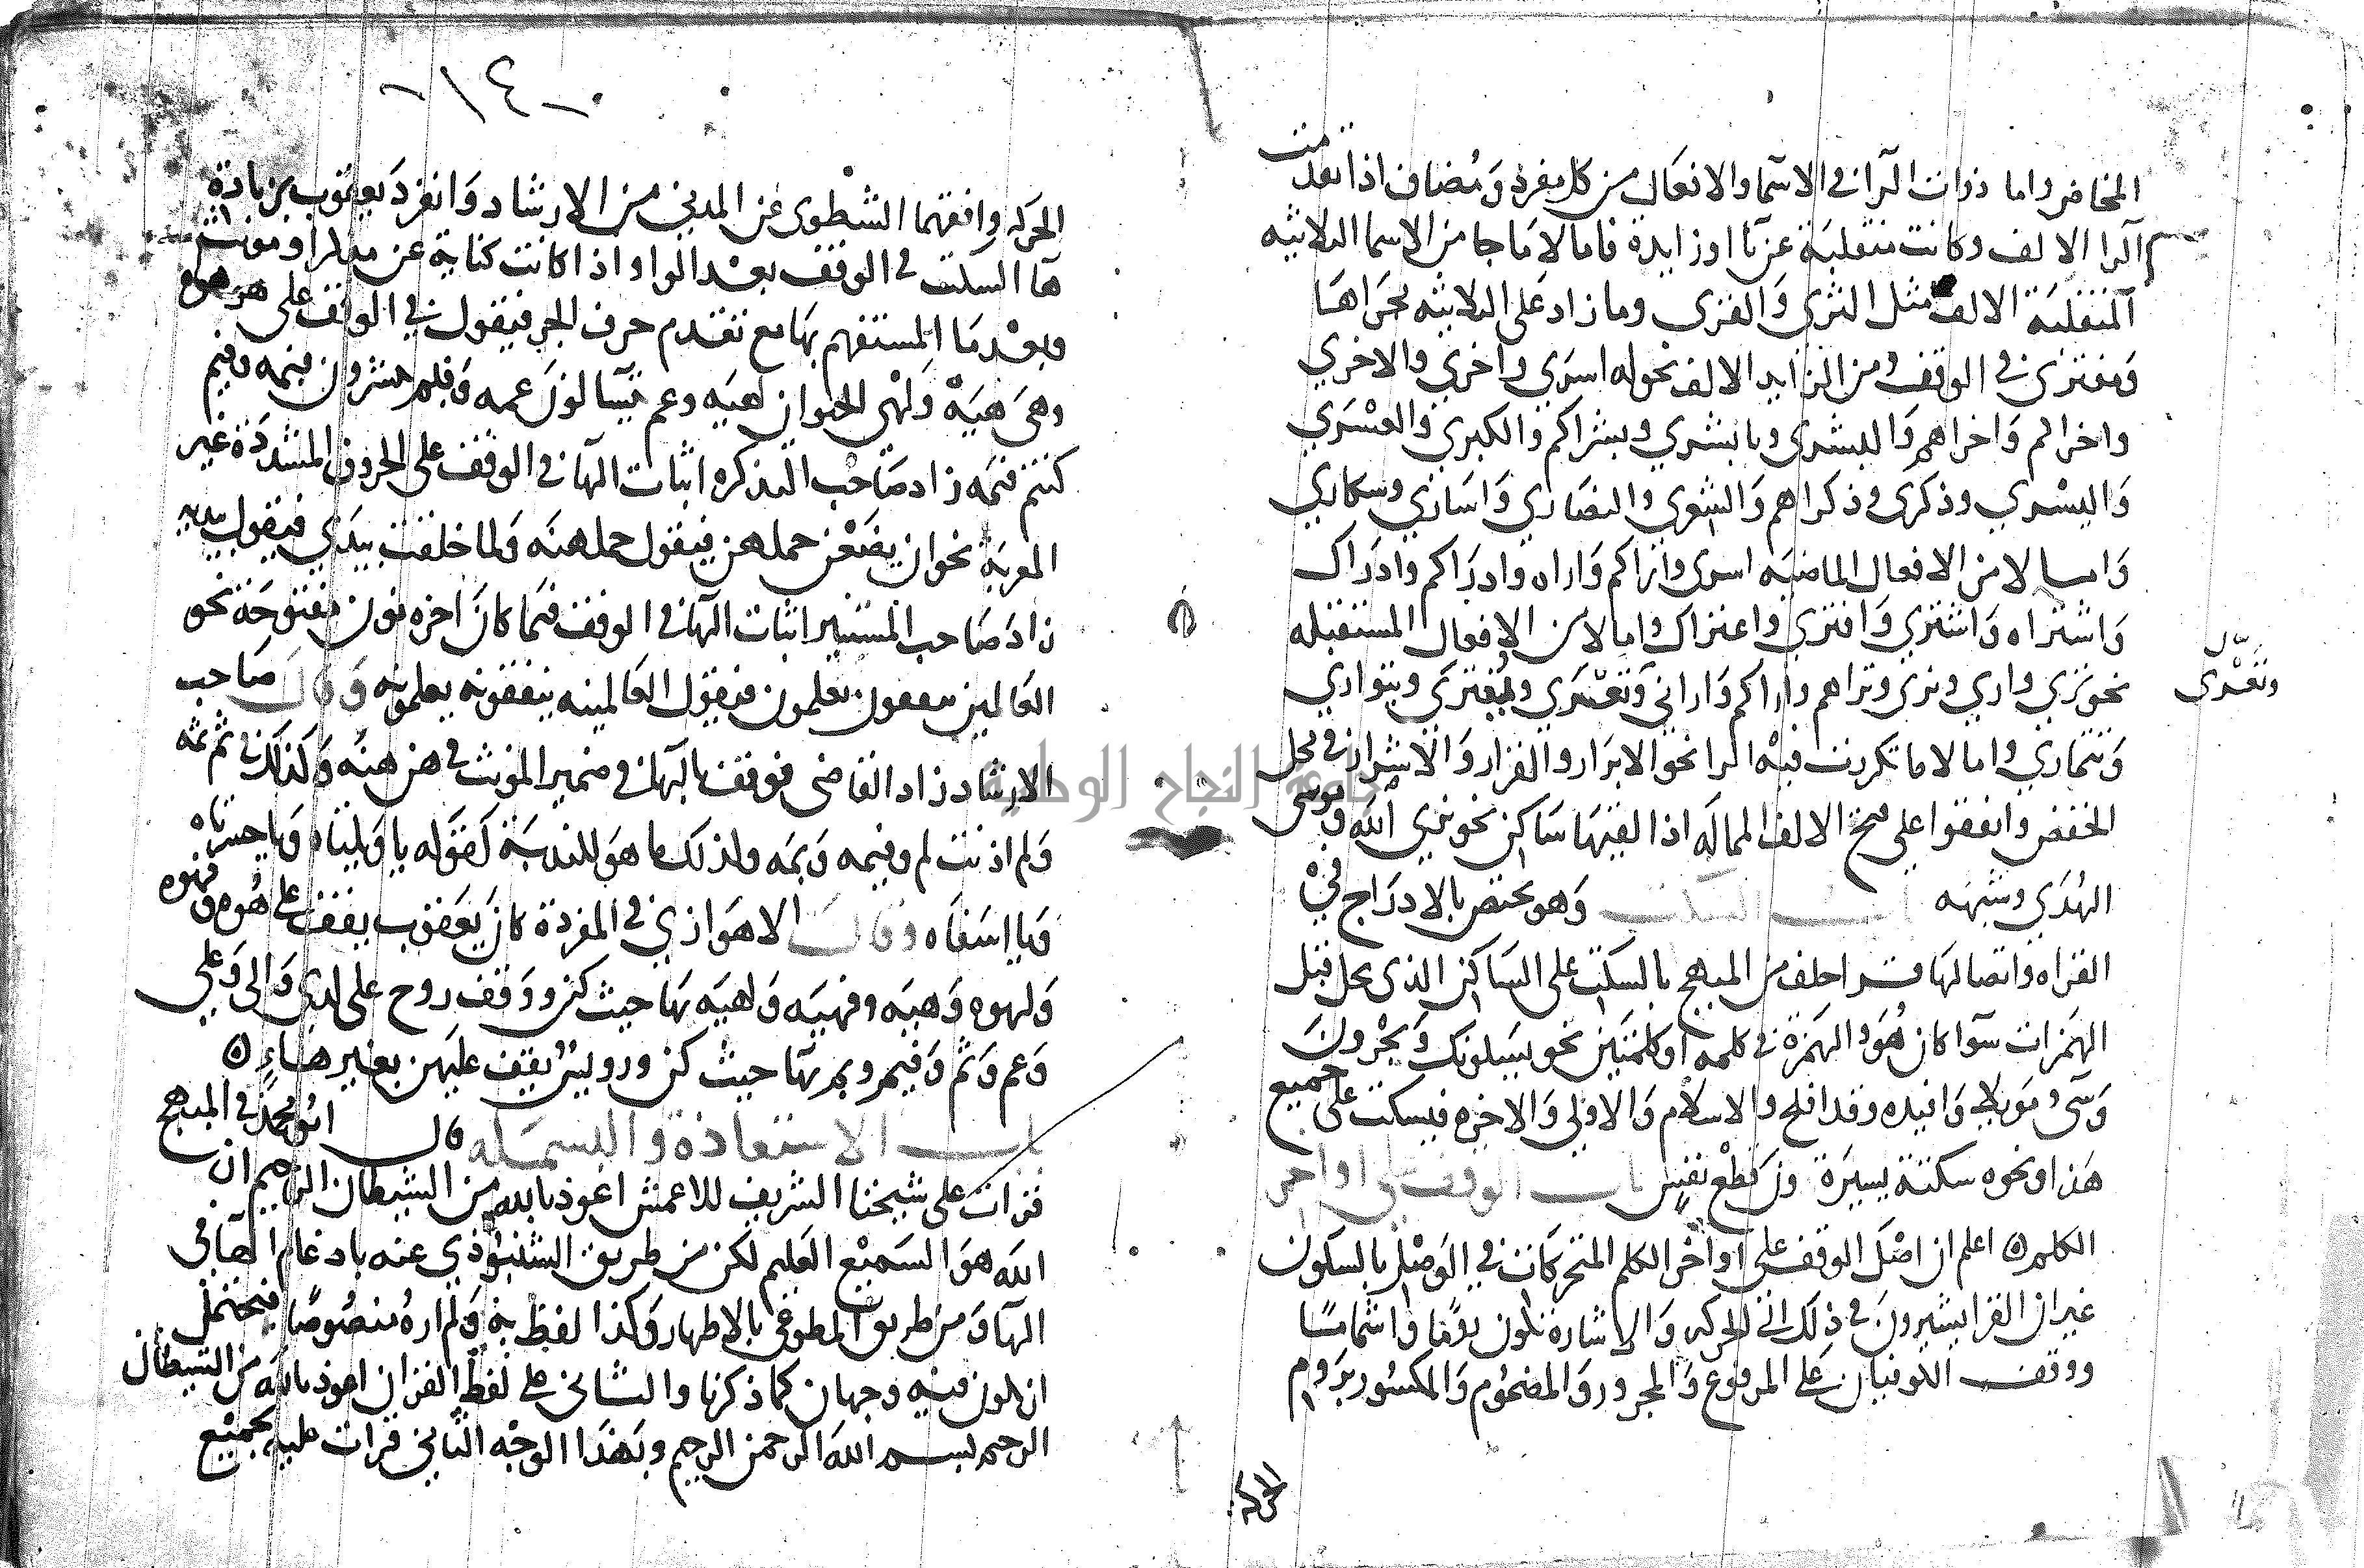 المخافض واما ذوات الرا في الاسما والافعال من كل مفرد ومضاف اذا تقدمت
الرا الالف وكانت منقلبة عن يا او زايدة فامالا ما جا من الاسما الثلاثيه
المنقلبة الالف مثل الثرى والقرى وما زاد على الثلاثيه مجراها
ومفترى في الوقف ومن الزايد الالف نحو له اسرى واخرى والاخرى
واخراكم واخراهم والبشرى ويا بشرى وبشراكم والكبرى والعسرى
واليسرى وذكرى وذكراهم والشعرى والنصارى واسارى وسكارى
وامالا من الافعال الماضيه اسرى واراكم واراه وادراكم وادراك
واشتراه واشترى وافترى واعتراك وامالا من الافعال المستقبله
نحو نرى وارى وترى وتراهم واراكم واراني وتفترى ويفترى ويتوارى
وتعرى
وتتمارى وامالا ما تكررت فيه الرا نحو الابرار والقرار والاشرار في محل
الخفض واتفقوا على فتح الالف الممالة اذا لقيها ساكن نحو نرى الله وموسى
الهدى وشبهه باب السكت وهو مختص بالادراج في
القراه واتصالها قرا خلف من المبهج بالسكت على الساكن الذي يحل قبل
الهمزات سوآ كان هو والهمزة في كلمه او كلمتين نحو يسلونك ويجرون
وشي وموئلا وافيده وقد افلح والاسلام والاولى والاخره فيسكت على جميع
هذا ونحوه سكتة يسيرة من قطع نفس باب الوقف على اواخر
الكلم اعلم ان اصل الوقف على اواخر الكلم المتحركات في الوصل بالسكون
غير ان القرا يشيرون في ذلك الى الحركه والاشارة تكون روما واشماما
ووقف الكوفيان على المرفوع والمجرور والمضموم والمكسور بروم
الحركه
-١٤-
الحركه وافقهما الشطوى عن المدني من الارشاد وانفرد يعقوب بزيادة
ها السكت في الوقف بعد الواو اذا كانت كناية عن مذكر او مونث
وبعد ما المستفهم بها مع تقدم حرف الجر فيقول في الوقف على هو هوه
وهي هيه ولهي الحيوان لهيه وعم يتسالون عمه وفبم تبشرون فبمه وفيم
كنتم فيمه زاد صاحب التذكره اثبات الها في الوقف على الحروف المشددة غير
المعربة نحو ان يضعن حملهن فيقول حملهنه ولما خلقت بيدي فيقول بيديه
زاد صاحب المستنير اثبات الها في الوقف فيما كان اخره نون مفتوحة نحو
العالمين ينفقون يعلمون فيقول العالمينه ينفقونه يعلمونه وقال صاحب
الارشاد زاد القاضي فوقف بالها في ضمير المونث في هن هنه وكذلك في ثم ثمه
ولم اذنت لم وفيمه وبمه وكذلك ما هو للندبة كقوله يا ويلتاه ويا حسرتاه
ويا اسفاه وقال الاهوازي في المفردة كان يعقوب يقف على هوه وفهوه
ولهوه وهيه وفهيه ولهيه بها حيث كن ووقف روح على لدي والي وعلي
وعم وثم وفيم وبم بها حيث كن ورويس يقف عليهن بغير هاء ٥
باب الاستعاذة والبسملة قال ابو محمد في المبهج
قرات على شيخنا الشريف للاعمش اعوذ بالله من الشيطان الرجيم ان
الله هو السميع العليم لكن من طريق الشنبوذي عنه بادغام الها في
الها ومن طريق المطوعي بالاظهار وكذا لفظ به ولم اره منصوصا فيحتمل
ان يكون فيه وجهان كما ذكرنا والثاني على لفظ القران اعوذ بالله من الشيطان
الرجيم بسم الله الرحمن الرحيم وبهذا الوجه الثاني قرات عليه لجميع
جامعة النجاح الوطنية